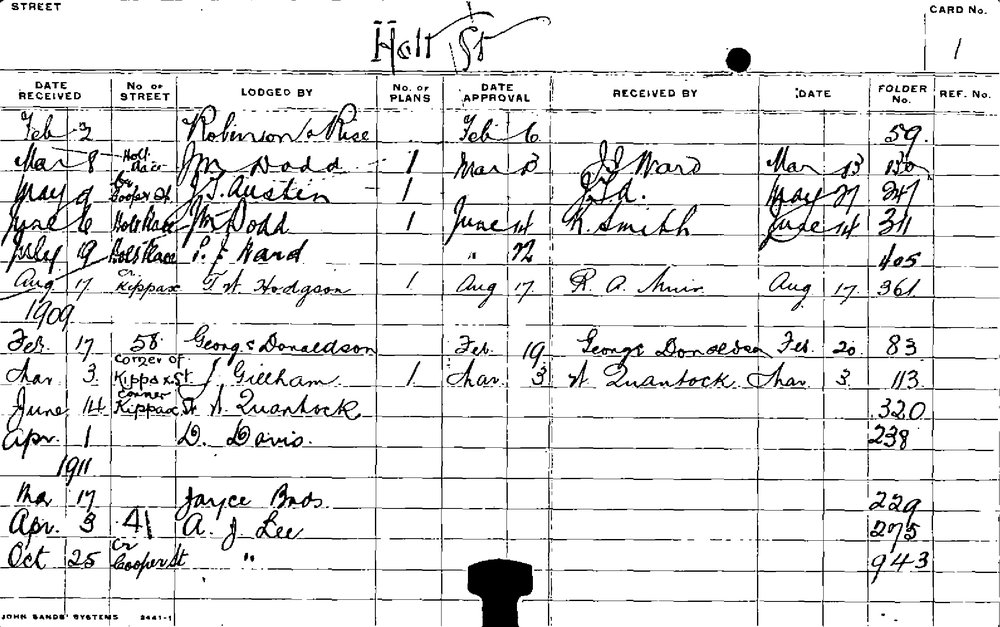 STREET
Holt St
CARD No.
1
DATE RECEIVED No. OF STREET LODGED BY No. OF PLANS DATE APPROVAL RECEIVED BY DATE FOLDER No. REF. No.
Feb 2 Robinson & Rise Feb 6 59
Mar 8 Holt Place J M Dodd 1 Mar 13 J J Ward Mar 13 130
May 9 Cr Cooper St J. T. Austin 1 May 27 247
June 6 Holt Place J M Dodd 1 June 14 K. Smith June 14 311
July 19 Holt Place P. J. Ward " 22 405
Aug 17 cr. Kippax T W Hodgson 1 Aug 17 R. A. Muir Aug 17 361
1909
Feb. 17 58 George Donaldson Feb. 19 George Donaldson Feb. 20 83
Mar. 3 corner of Kippax St J Gillham 1 Mar. 3 W Quantock Mar. 3 113
June 14 corner Kippax St W Quantock 320
Apr. 1 D. Davis. 238
1911
Mar 17 Jayce Bros. 229
Apr. 3 41 A. J. Lee 275
Oct 25 Cr Cooper St " 943
JOHN SANDS' SYSTEMS 2441-1